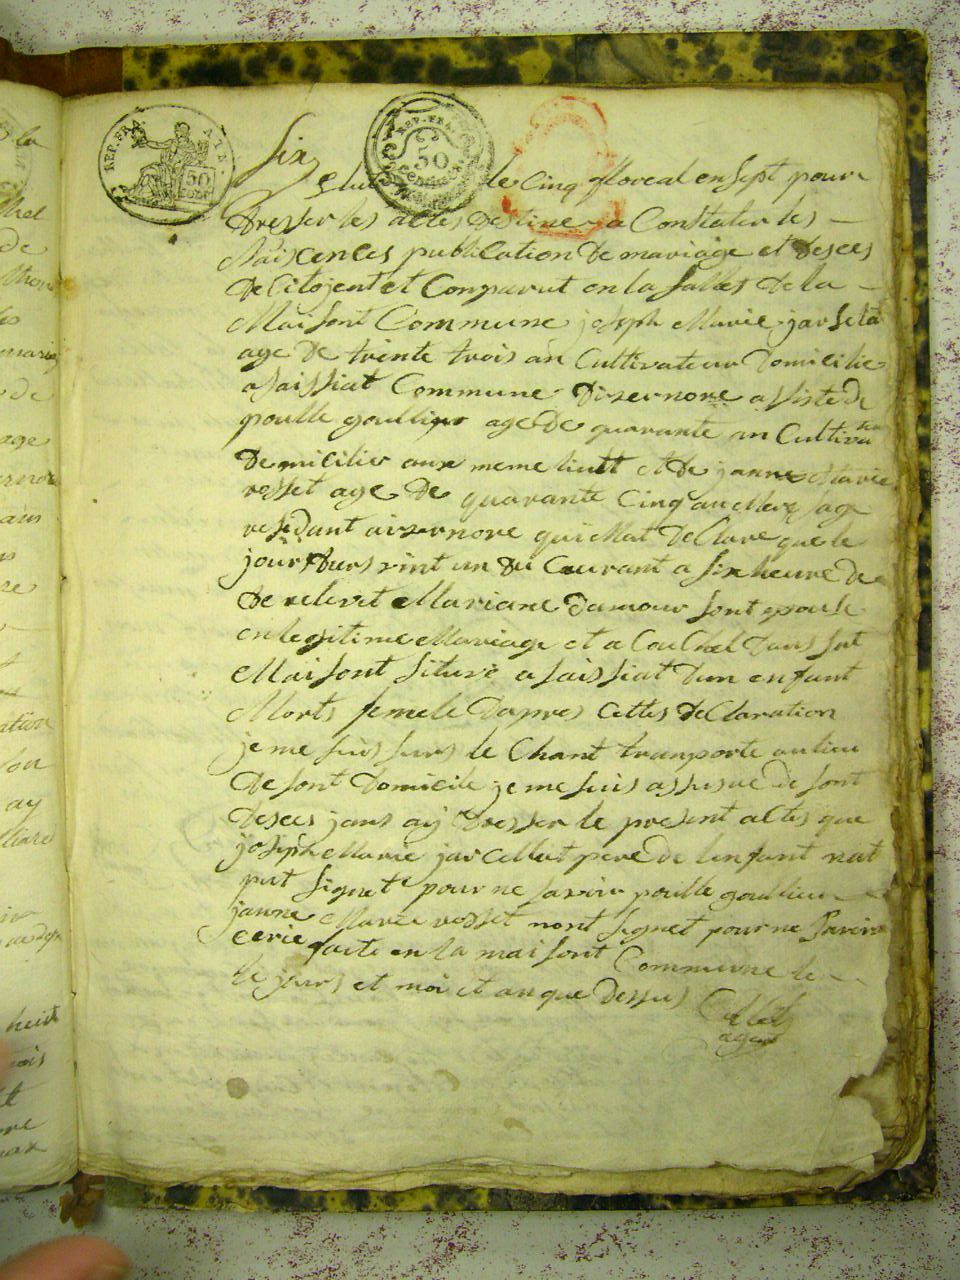 REP. FRA.
50
REP. FRA.
50
Six
Elu le cinq floreal en sept pour
Dresser les actes destine a Constater les
Naiscences publication de mariage et desces
de Citojent et Comparut en la salles de la
Maisont Commune joseph Marie jarselat
age de trinte trois an Cultivateur Domicilie
a saissiat Commune Dizernore assiste de
poulle goullieux age de quarante an Cultivateur
Demicilier aux meme lieutt et de janne Marie
rosset age de quarante Cinq an Mere sage
residant a izernore qui Mat declare que le
jour vint un du Courant a six heure de
Mariane Damour sont epouse
en legitime Mariage et a Couchet dans sot
Maisont Siture a saissiat Dun enfant
Morts femele Dapres Cettes Declaration
je me suis surs le Chant transporte au lieu
de sont Domicile je me suis assure de sont
desces jans ay Dresser le present actes que
joseph Marie jarcellat pere de lenfant nat
put signet pour ne savoir poulle goullieu
janne Marie rosset nont signet pour ne savoir
ecrie faite en la maisont Commune le
le jours et moi et an que Dessus
agent